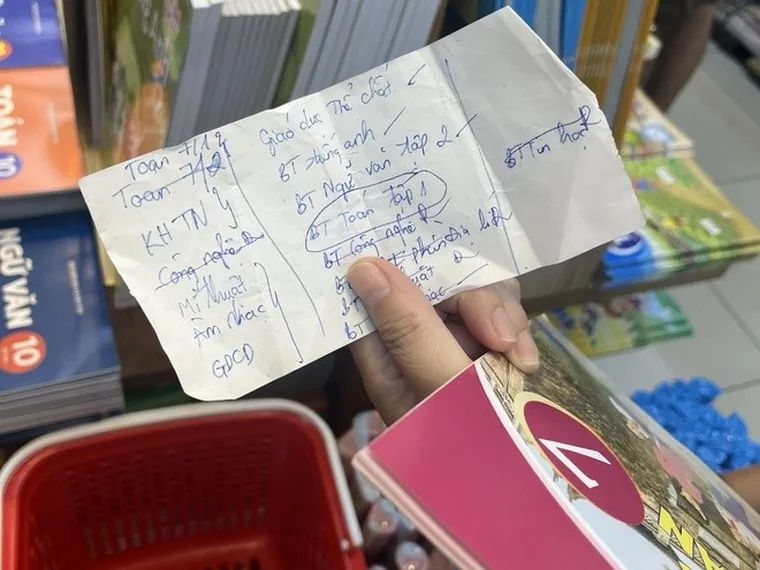 Toan 7/1
Toan 7/2
KHTN
Công nghệ
Mĩ thuật
Âm nhạc
GDCD
Giáo dục Thể chất
BT tiếng anh
BT Ngữ văn tập 2
BT Toan tập 1
BT Công nghệ
BT
BT
BT
BT Tin học
TOÁN 10
NGỮ VĂN
10
7